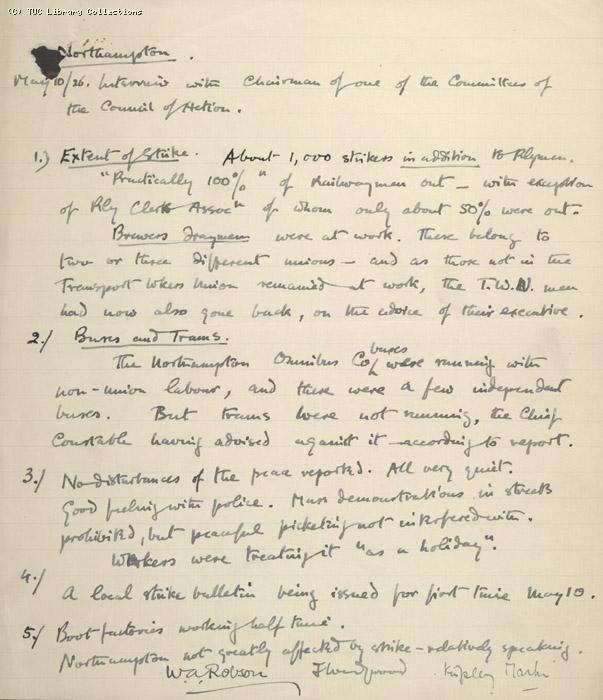 (C) TUC Library Collections
Northampton.
May 10/26. Interview with Chairman of one of the Committees of
the Council of Action.
1.) Extent of Strike. About 1,000 strikers in addition to Rlymen.
"Practically 100%" of Railwaymen out - with exception
of Rly Clerks Assocn of whom only about 50% were out.
Brewers Draymen were at work. These belong to
two or three different unions - and as those not in the
Transport Wkers Union remained at work, the T.W.U. men
had now also gone back, on the advice of their executive.
2./ Buses and Trams.
The Northampton Omnibus Co buses were running with
non-union labour, and there were a few independent
buses. But trams were not running, the Chief
Constable having advised against it - according to report.
3./ No disturbances of the peace reported. All very quiet.
Good feeling with police. Mass demonstrations in streets
prohibited, but peaceful picketing not interfered with.
Workers were treating it "as a holiday".
4./ A local strike bulletin being issued for first time May 10.
5./ Boot factories working half time.
Northampton not greatly affected by strike - relatively speaking.
W.A. Robson Kingsley Martin